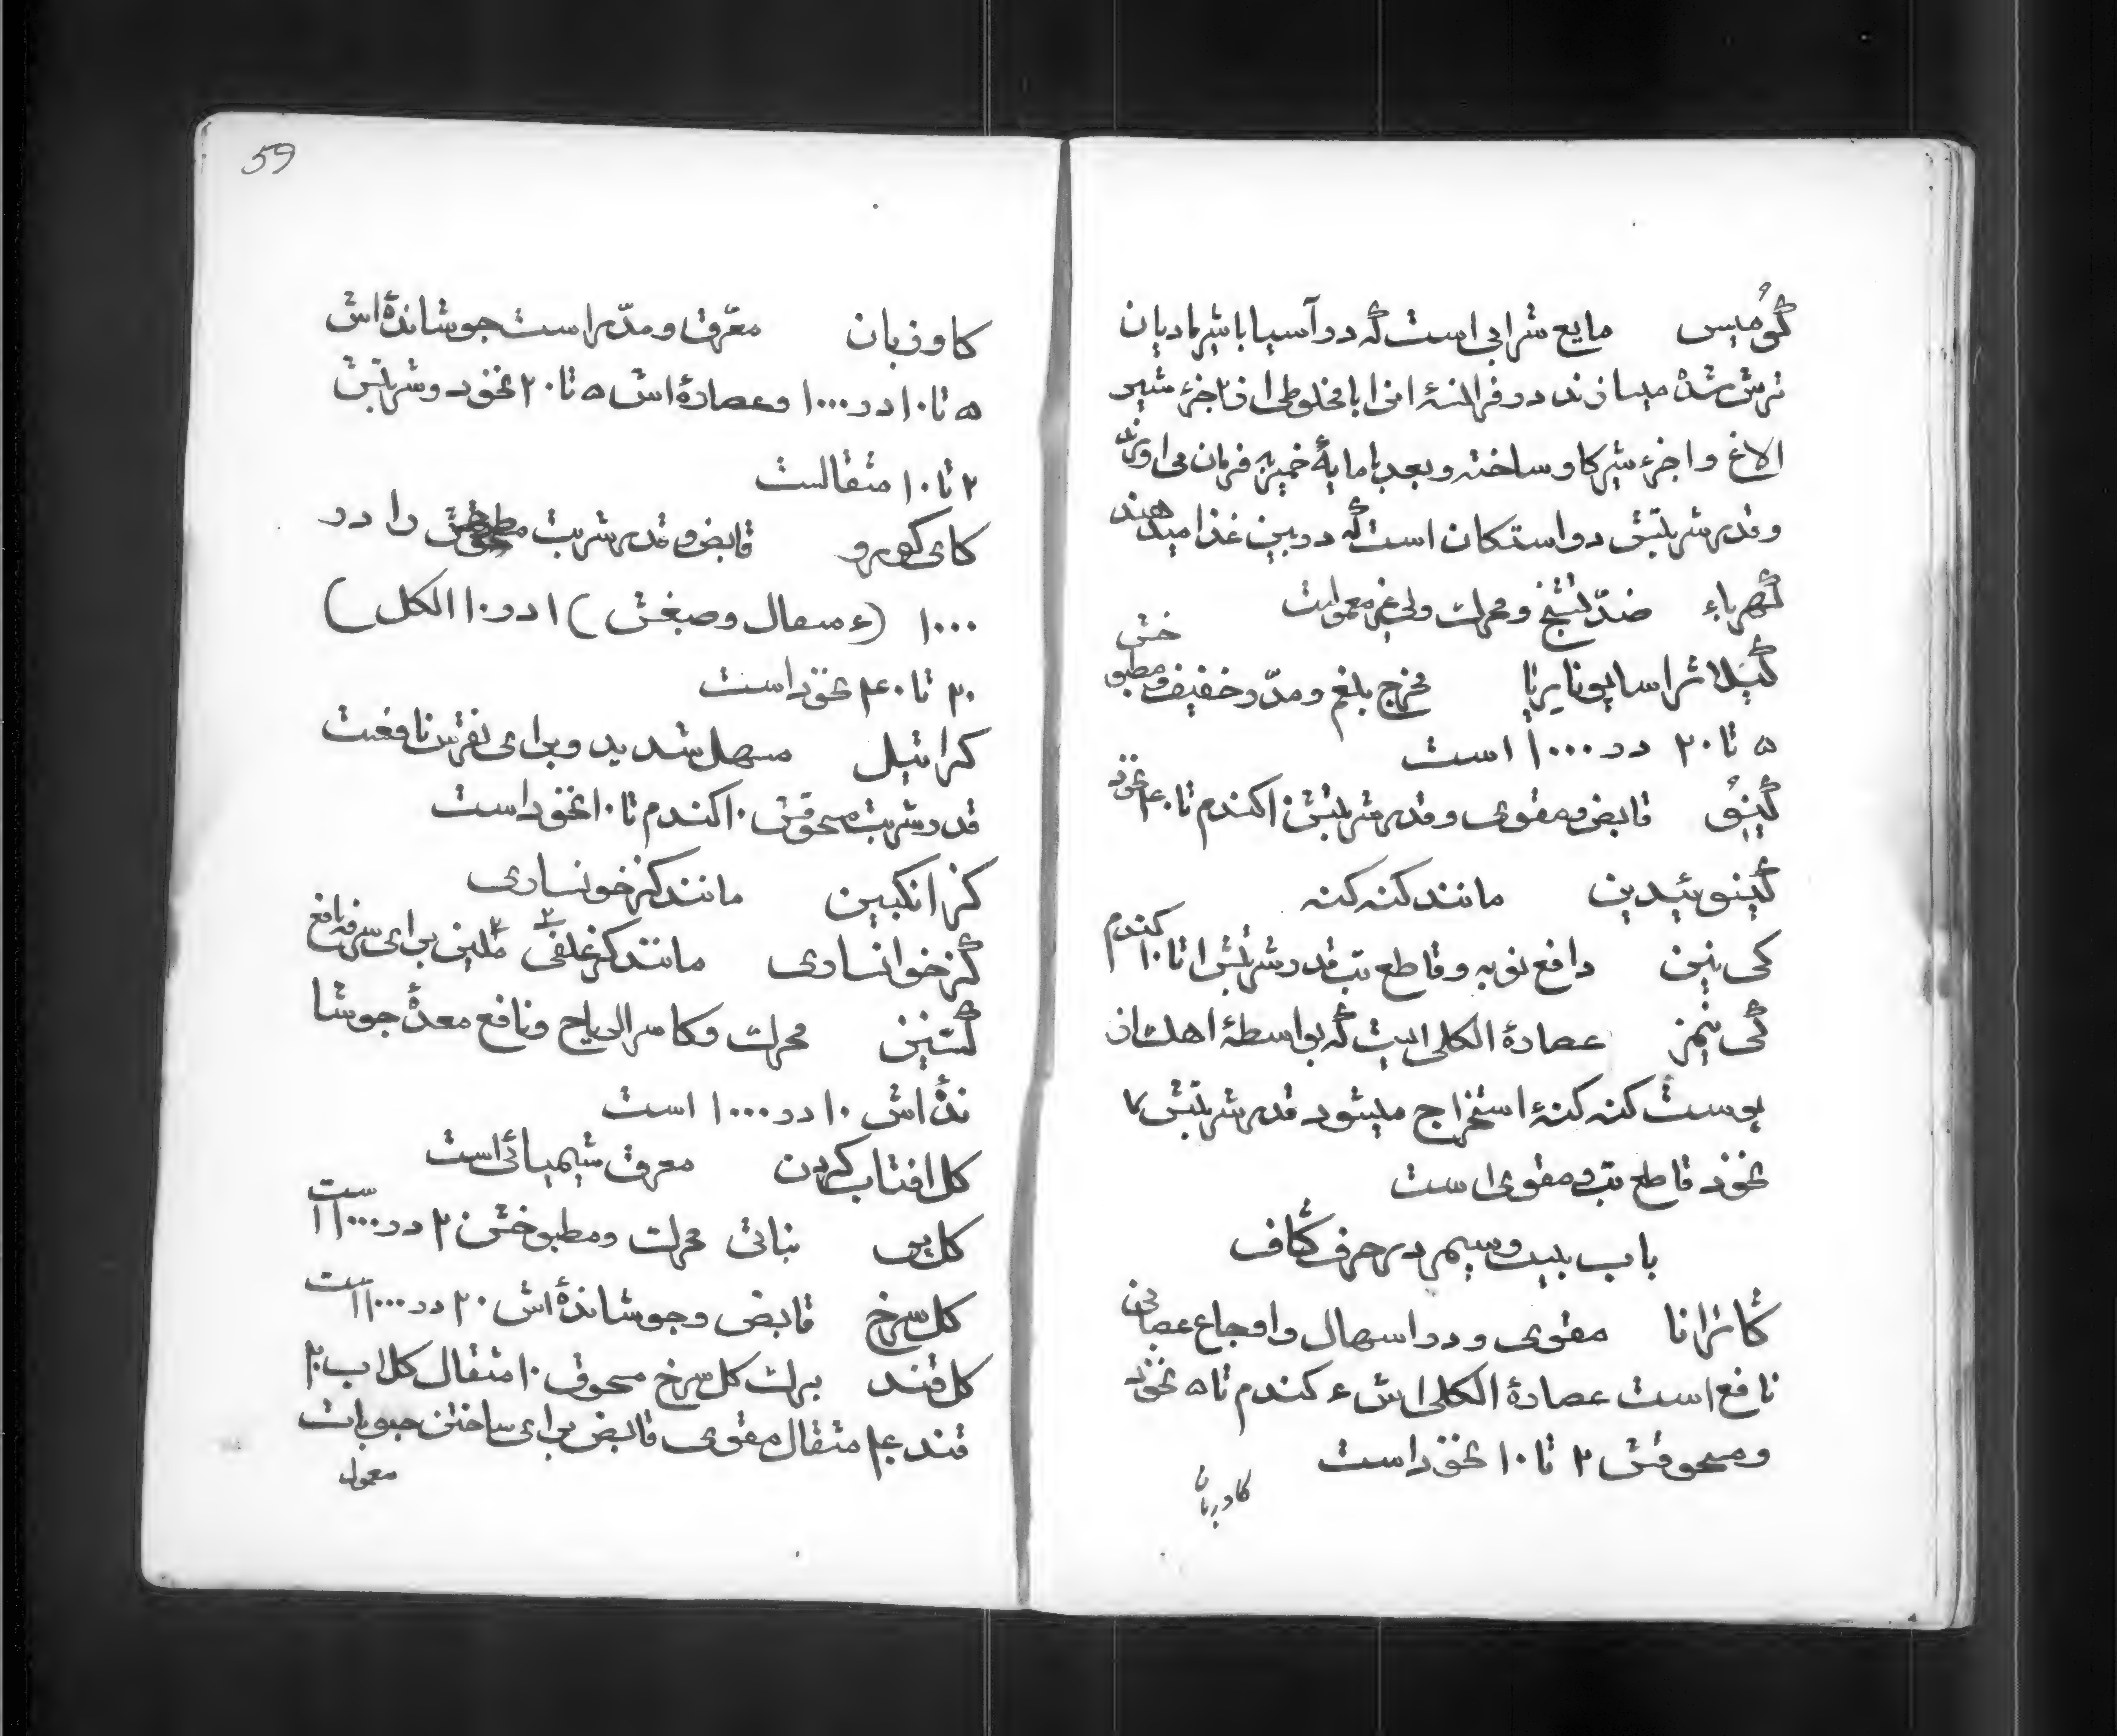 کومیس مایع شرابی است که در آسیا با شیر مادیان
ترش شده میسازند در فرانسه انرا با مخلوطی از ۲ جزء شیر
الاغ و ۱ جزء شیر کاو ساخته و بعد با مایهٔ خمیر به فرمان می اورند
و قدر شربتش دو استکان است که در بین غذا میدهند
کهرباء ضدّ تشنج و محرک ولی غیر معمولست
کیلاثراساپوناریا مخرج بلغم و مدّر خفیف و مطبو خش
۵ تا ۲۰ در ۱۰۰۰ است
کینو قابض و مقوی و قدر شربتش ۱ کندم تا ۴۰ نخود
کینوئیدین مانند کنه کنه
کی نین دافع نوبه و قاطع تب قدر شربتش ۱ تا ۱۰ کندم
کی نیمز عصارهٔ الکلی است که بواسطهٔ اهک از
پوست کنه کنهٔ استخراج میشود قدر شربتش ۷
نخود قاطع تب و مقوی است
باب بیست و سیم در حرف گاف
گارانا مقوی و در اسهال و اوجاع عصبانی
نافع است عصارهٔ الکلی اش ۴ کندم تا ۵ نخود
و مسحوقش ۲ تا ۱۰ نخود است
کاوزبان
59
کاوزبان معرّق و مدّر است جوشاندهٔ اش
۵ تا ۱۰ در ۱۰۰۰ و عصارهٔ اش ۵ تا ۲۰ نخود و شربتش
۲ تا ۱۰ مثقالست
کای کورو قابض و قدر شربت را در
۱۰۰۰ (۴ مثقال و صبغش) ۱ در ۱۰ الکل)
۲۰ تا ۴۰ نخود است
کراتیل مسهل شدید و برای نقرس نافعست
قدر شربت مسحوقش ۱۰ کندم تا ۱۰ نخود است
کزانکبین مانند کز خونساری
کز خوانساری مانند کز علفی ملین برای سرفه نافع
کشنیز محرک و کاسر الریاح و نافع معدهٔ جوشا
ندهٔ اش ۱۰ در ۱۰۰۰ است
کل افتاب کردن معرق شیمیائی است
کل پر بناتی محرک و مطبوخش ۲ در ۱۰۰۰ است
کل سرخ قابض و جوشاندهٔ اش ۲۰ در ۱۰۰۰ است
کل قند برک کل سرخ مسحوق ۱۰ مثقال کلاب ۲۰
قند ۴۰ مثقال مقوی قابض برای ساختن حبوبات
معمول